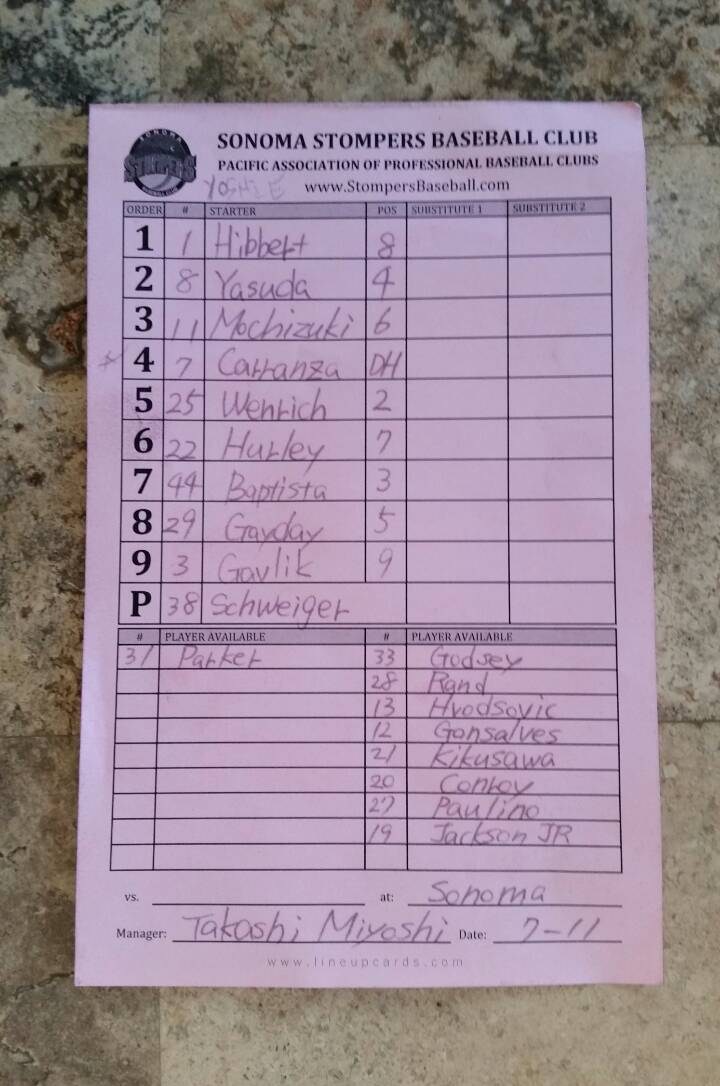 SONOMA
STOMPERS
BASEBALL CLUB
SONOMA STOMPERS BASEBALL CLUB
PACIFIC ASSOCIATION OF PROFESSIONAL BASEBALL CLUBS
www.StompersBaseball.com
YOSHIE
ORDER # STARTER POS SUBSTITUTE 1 SUBSTITUTE 2
1 1 Hibbert 8
2 8 Yasuda 4
3 11 Mochizuki 6
4 7 Carranza DH
5 25 Wenrich 2
6 22 Hurley 7
7 44 Baptista 3
8 29 Gayday 5
9 3 Gavlik 9
P 38 Schweiger
# PLAYER AVAILABLE # PLAYER AVAILABLE
31 Parker 33 Godsey
28 Rand
13 Hvodsovic
12 Gonsalves
21 Kikusawa
20 Conroy
27 Paulino
19 Jackson JR
vs. at: Sonoma
Manager: Takashi Miyoshi Date: 7-11
www.lineupcards.com